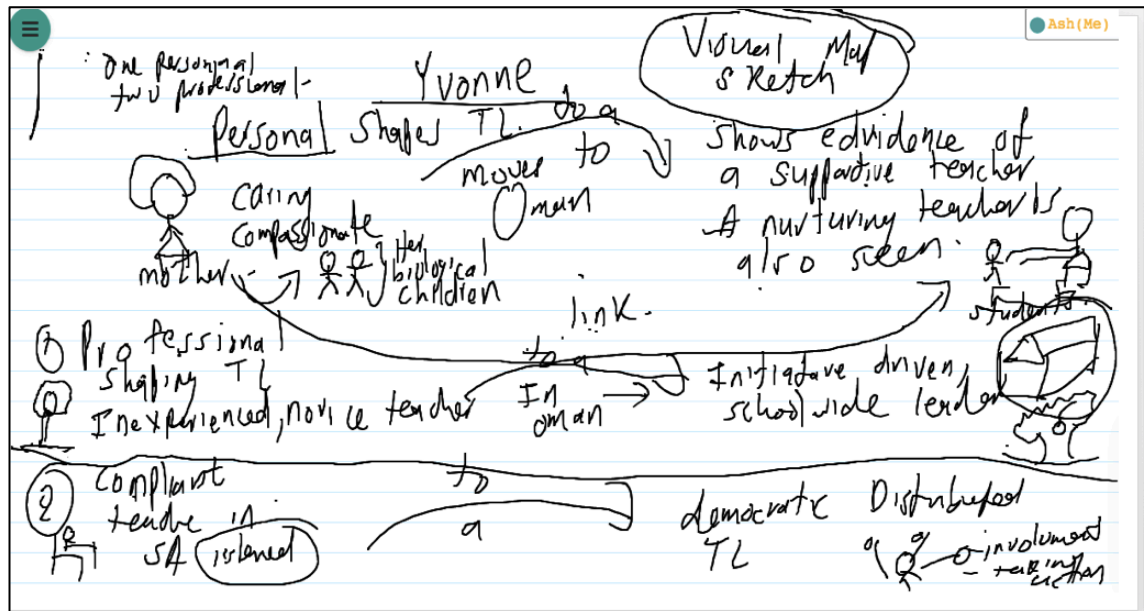 Ash(Me)
Visual Map
sketch
: one personal
two professional-
Yvonne
Personal shapes TL. to a
moves to
Oman
shows edvidence of
a supportive teacher
A nurturing teacher is
also seen.
caring
compassionate
mother
Her
biological
children
students
link.
① Professional
shaping TL
Inexperienced, novice teacher
to a
In
oman
Initiatave driven,
school wide leader
② Compliant
teache in
SA listened
to
a
democratic Distributed
TL
involvment
taking
action